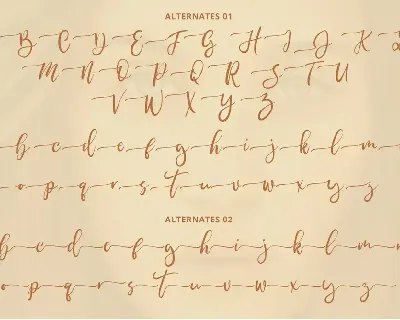 ALTERNATES 01
B C D E F G H I J K
M N O P Q R S T U
V W X Y Z
b c d e f g h i j k l m
o p q r s t u v w x y z
ALTERNATES 02
b c d e f g h i j k l m
o p q r s t u v w x y z